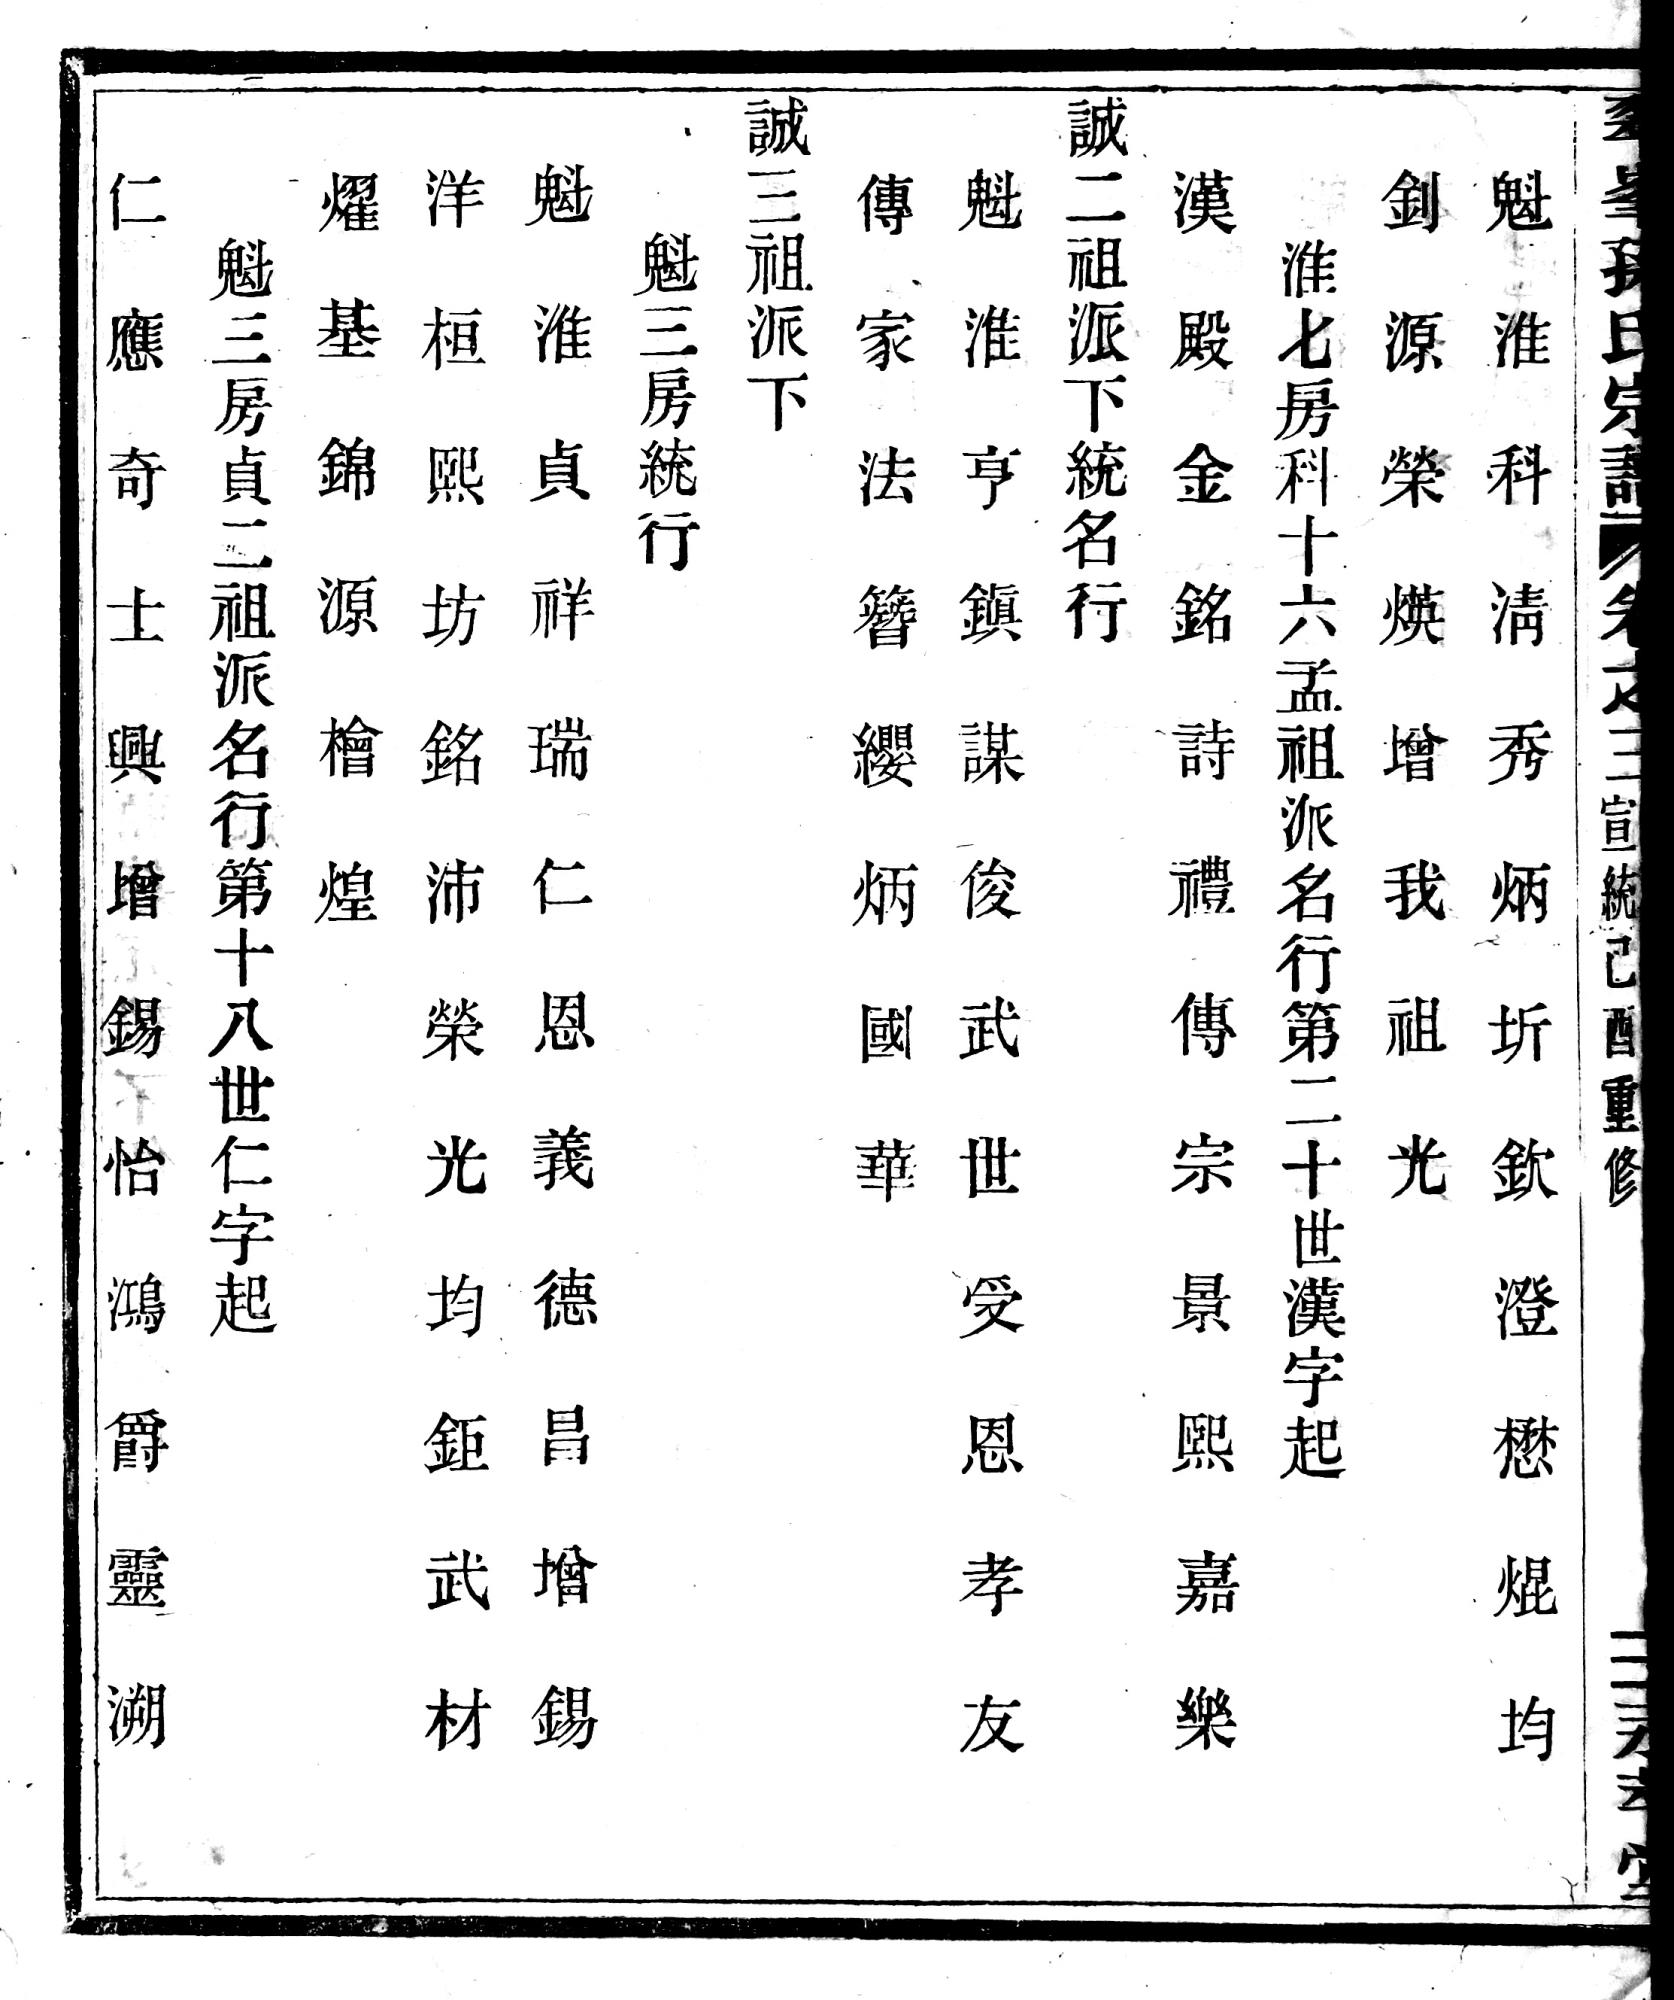 孫氏宗譜卷之三宣統己酉重修 二
魁淮科淸秀炳圻欽澄懋焜均
釗源榮煐增我祖光
淮七房科十六孟祖派名行第二十世漢字起
漢殿金銘詩禮傳宗景熙嘉樂
誠二祖派下統名行
魁淮亨鎮謀俊武世受恩孝友
傳家法簪纓炳國華
誠三祖派下
魁三房統行
魁淮貞祥瑞仁恩義德昌增錫
洋桓熙坊銘沛榮光均鉅武材
燿基錦源檜煌
魁三房貞二祖派名行第十八世仁字起
仁應奇士興增錫怡鴻爵靈溯